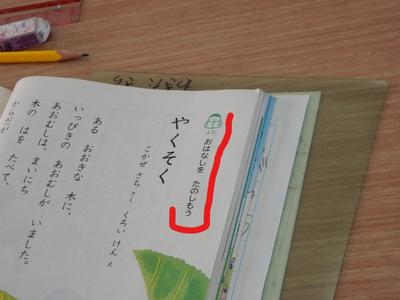 よむ
おはなしを たのしもう
やくそく
こかぜ さち さく くろい けん え
ある おおきな 木に、
いっぴきの あおむしが いました。
あおむしは、まいにち
木の はを たべて、
からだが